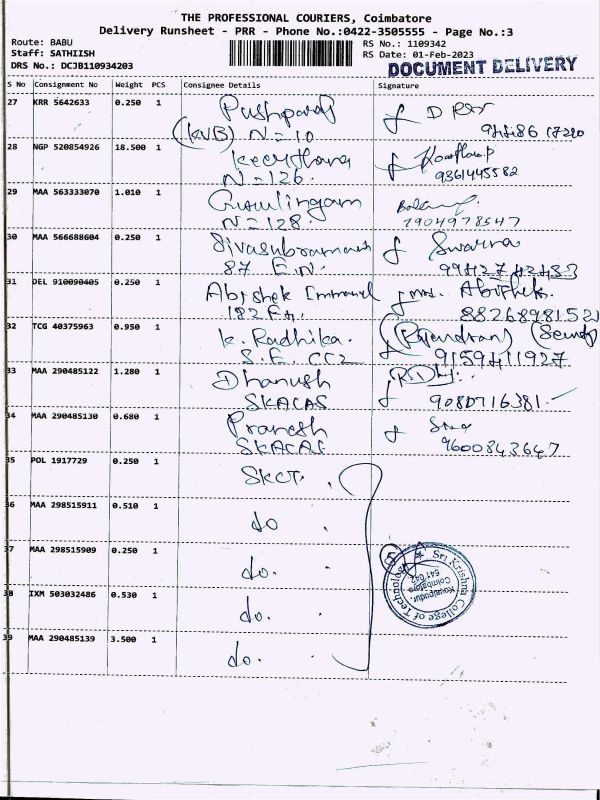 THE PROFESSIONAL COURIERS, Coimbatore
Delivery Runsheet - PRR - Phone No.:0422-3505555 - Page No.:3
Route: BABU
Staff: SATHIISH
DRS No.: DCJB110934203
RS No.: 1109342
RS Date: 01-Feb-2023
DOCUMENT DELIVERY
S No Consignment No Weight PCS Consignee Details Signature
27 KRR 5642633 0.250 1 Pushparaj
(KVB) N=10
28 NGP 520854926 18.500 1 Keerthana
N=126. 9361445582
29 MAA 563333070 1.010 1
N=128. 7904978547
30 MAA 566688604 0.250 1 Sivasubramani Swarna
87 E.N. 9942742433
31 DEL 910090405 0.250 1 Abishek Immanuel Mrs. Abishek.
182 8826898152
32 TCG 40375963 0.950 1 K. Radhika. (Rajendran)
S.E. CC2 9159411927
33 MAA 290485122 1.280 1 Dhanush
SKACAS 9080716381
34 MAA 290485130 0.680 1 Pranesh
SKACAS 9600843647
35 POL 1917729 0.250 1 SKCT.
36 MAA 298515911 0.510 1 do
37 MAA 298515909 0.250 1 do.
38 IXM 503032486 0.530 1 do.
39 MAA 290485139 3.500 1 do.
Sri Krishna College of Technology
Kovaipudur,
Coimbatore
641 042